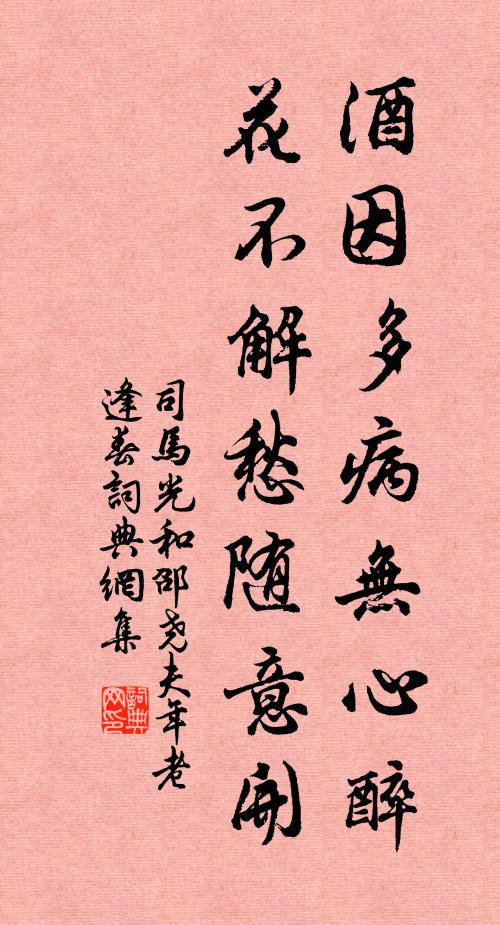 酒因多病無心醉
花不解愁随意開
司馬光和邵尧夫年老
逢春詞典網集
詞典
网印